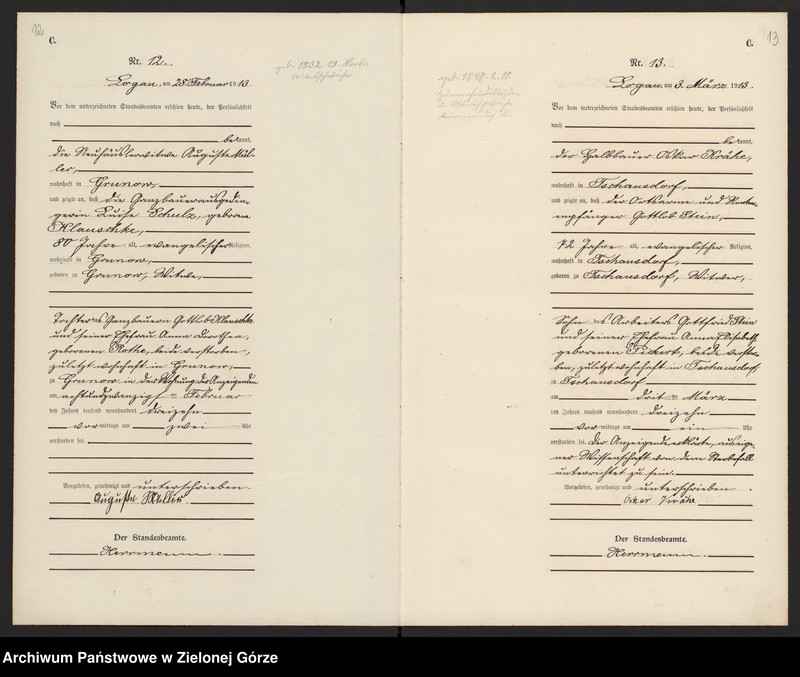 12
C.
Nr. 12.
Logau, am 28. Februar 1913.
Vor dem unterzeichneten Standesbeamten erschien heute, der Persönlichkeit
nach
bekannt,
die Neuhäuslerwitwe Auguste Mül-
ler,
wohnhaft in Grunow,
und zeigte an, daß die Ganzbauerausgedin-
gerin Luise Schulz, geborene
Klauschke,
80 Jahre alt, evangelischer Religion,
wohnhaft in Grunow,
geboren zu Grunow, Witwe,
Tochter des Ganzbauern Gottlob Klauschke
und seiner Ehefrau Anna Dorothea,
geborenen Rothe, beide verstorben,
zuletzt wohnhaft in Grunow,
zu Grunow in der Wohnung der Anzeigenden
am achtundzwanzigsten Februar
des Jahres tausend neunhundert dreizehn
vormittags um zwei Uhr
verstorben sei.
Vorgelesen, genehmigt und unterschrieben.
Auguste Müller
Der Standesbeamte.
Herrmann.
geb. 1832. 19.
13
C.
Nr. 13.
Logau, am 3. März 1913.
Vor dem unterzeichneten Standesbeamten erschien heute, der Persönlichkeit
nach
bekannt,
der Halbbauer Oskar Krähe,
wohnhaft in Tschausdorf,
und zeigte an, daß der Ortsarme und Renten-
empfänger Gottlob Stein,
72 Jahre alt, evangelischer Religion,
wohnhaft in Tschausdorf,
geboren zu Tschausdorf, Witwer,
Sohn des Arbeiters Gottfried Stein
und seiner Ehefrau Anna Elisabeth,
geborenen Pickert, beide verstor-
ben, zuletzt wohnhaft in Tschausdorf
zu Tschausdorf
am dritten März
des Jahres tausend neunhundert dreizehn
vormittags um ein Uhr
verstorben sei. Der Anzeigende erklärte, aus eige-
ner Wissenschaft von dem Sterbefall
unterrichtet zu sein.
Vorgelesen, genehmigt und unterschrieben.
Oskar Krähe
Der Standesbeamte.
Herrmann.
Archiwum Państwowe w Zielonej Górze